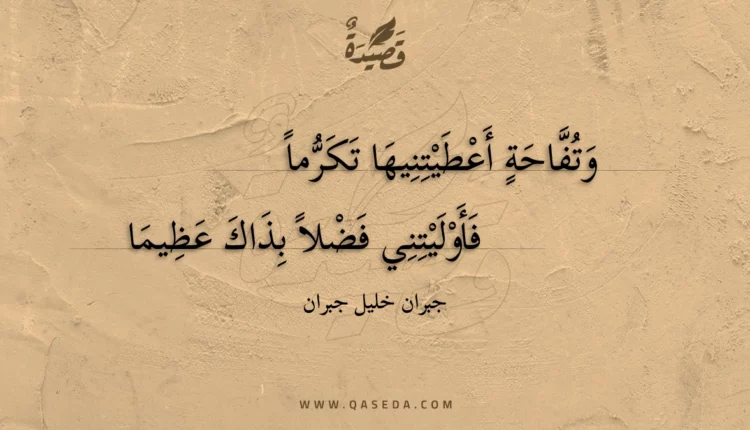 قَصِيدَةٌ
وَتُفَّاحَةٍ أَعْطَيْتِنِيهَا تَكَرُّماً
فَأَوْلَيْتِنِي فَضْلاً بِذَاكَ عَظِيمَا
جبران خليل جبران
WWW.QASEDA.COM